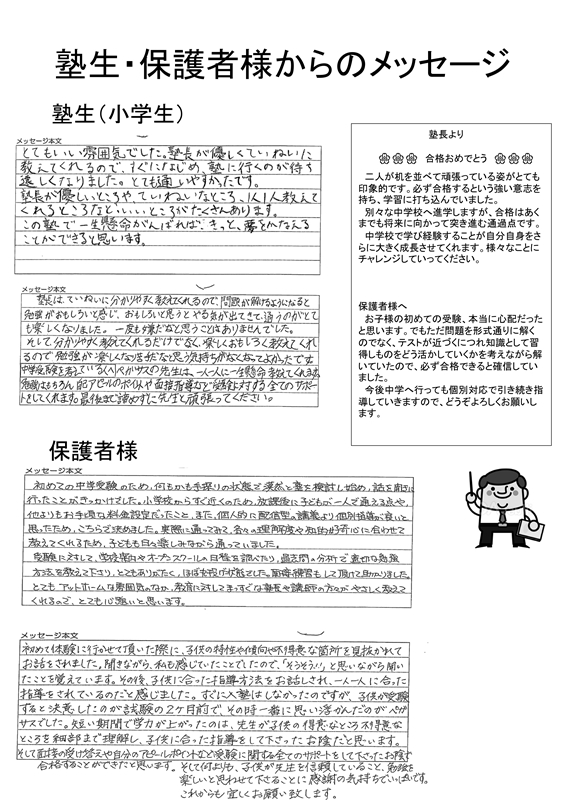 塾生・保護者様からのメッセージ
塾生(小学生)
メッセージ本文
とてもいい雰囲気でした。塾長が優しくていねいに
教えてくれるので、すぐになじめ、塾に行くのが待ち
遠しくなりました。とても通いやすかったです。
塾長が優しいところや、ていねいなところ、1人1人教えて
くれるところなど、いいところがたくさんあります。
この塾で一生懸命がんばれば、きっと、夢をかなえる
ことができると思います。
メッセージ本文
塾長は、ていねいに分かりやすく教えてくれるので、問題が解けるようになると
勉強がおもしろいと感じ、おもしろいと思うとやる気が出てきて、通うのがとて
も楽しくなりました。一度も嫌だなと思うことはありませんでした。
そして分かりやすく教えてくれるだけでなく、楽しくおもしろく教えてくれ
るので勉強が楽しくなり嫌だなと思う気持ちがなくなってよかったです。
中学受験を教えているペガサスの先生は、一人一人に一生懸命教えてくれます。
勉強はもちろん、自己アピールのポイントや面接指導など受験に対する全てのサポー
トをしてくれます。最後まで諦めずに先生と頑張ってください。
保護者様
メッセージ本文
初めての中学受験のため、何もかも手探りの状態で漠然と塾を検討し始め、話を聞きに
行ったことがきっかけでした。小学校からすぐ近くのため、放課後に子どもが一人で通える点や、
他よりもお手頃な料金設定だったこと、また、個人的に配信型の講義より個別指導が良いと
思ったため、こちらで決めました。実際に通ってみて、各々の理解度や知的好奇心に合わせて
教えてくれるため、子どもも日々楽しみながら通っていました。
受験に対して、学校案内やオープンスクールの日程を調べたり、過去問の分析で適切な勉強
方法を教えて下さり、とてもありがたく、ほぼお任せ状態でした。面接練習もして頂けて助かりました。
とてもアットホームな雰囲気のなか、教育に対してまっすぐな塾長や講師の方々がやさしく教えて
くれるので、とても心強いと思います。
メッセージ本文
初めて体験に行かせて頂いた際に、子供の特性や傾向や不得意な箇所を見抜かれて
お話をされました。聞きながら、私も感じていたことでしたので、「そうそう!!」と思いながら聞い
たことを覚えています。その後、子供に合った指導方法をお話しされ、一人一人に合った
指導をされているのだと感じました。すぐに入塾はしなかったのですが、子供が受験
すると決意したのが試験の2ヶ月前で、その時一番に思い浮かんだのがペガ
サスでした。短い期間で学力が上がったのは、先生が子供の得意なところ不得意な
ところを細部まで理解し、子供に合った指導をして下さったお陰だと思います。
そして面接の受け答えや自分のアピールポイントなど受験に関する全てのサポートをして下さったお陰で
合格することができたと思います。そして何よりも、子供が先生を信頼していること、勉強を
楽しいと思わせて下さることに感謝の気持ちでいっぱいです。
これからも宜しくお願い致します。
塾長より
合格おめでとう
二人が机を並べて頑張っている姿がとても
印象的です。必ず合格するという強い意志を
持ち、学習に打ち込んでいました。
別々な中学校へ進学しますが、合格はあく
までも将来に向かって突き進む通過点です。
中学校で学び経験することが自分自身をさ
らに大きく成長させてくれます。様々なことに
チャレンジしていってください。
保護者様へ
お子様の初めての受験、本当に心配だった
と思います。でもただ問題を形式通りに解く
のでなく、テストが近づくにつれ知識として習
得しものをどう活かしていくかを考えながら解
いていたので、必ず合格できると確信してい
ました。
今後中学へ行っても個別対応で引き続き指
導していきますので、どうぞよろしくお願いし
ます。